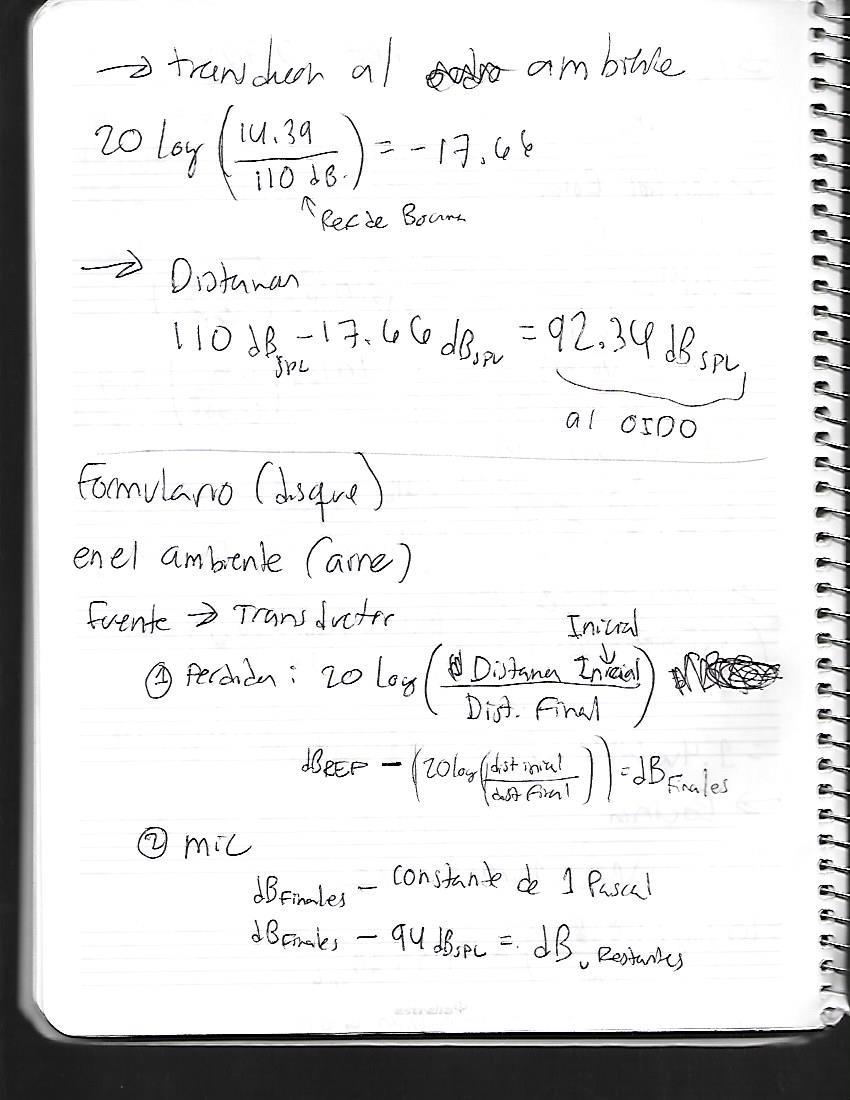 → transducen al ambiente
20 log (14.39 / 110 dB.) = -17.66
↑ Ref de Bocina
→ Distancias
110 dB SPL - 17.66 dB SPL = 92.34 dB SPL
al OIDO
Formulario (disque)
en el ambiente (aire)
Fuente → Transductor
Inicial
① Perdida: 20 Log (Distancia Inicial / Dist. Final)
dB REF - (20 log (dist inicial / dist Final)) = dB Finales
② mic
dB Finales - constante de 1 Pascal
dB Finales - 94 dB SPL = dBv Restantes